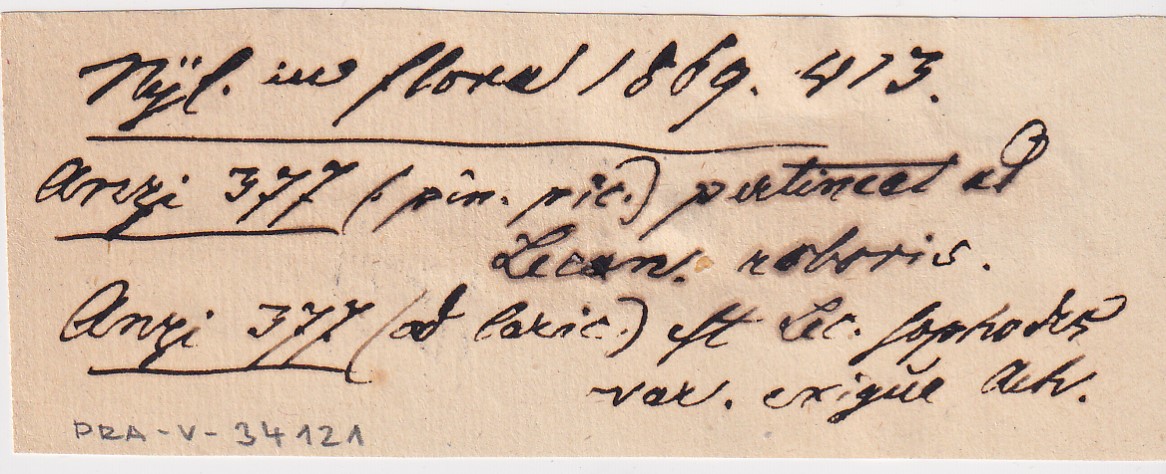 Nyl. in flora 1869. 413.
Anzi 377 (: pin. pic.) pertineat ad
Lecan. roboris.
Anzi 377 (ad laric.) est Lec. sophodes
var. exigua Ach.
PRA-V-34121